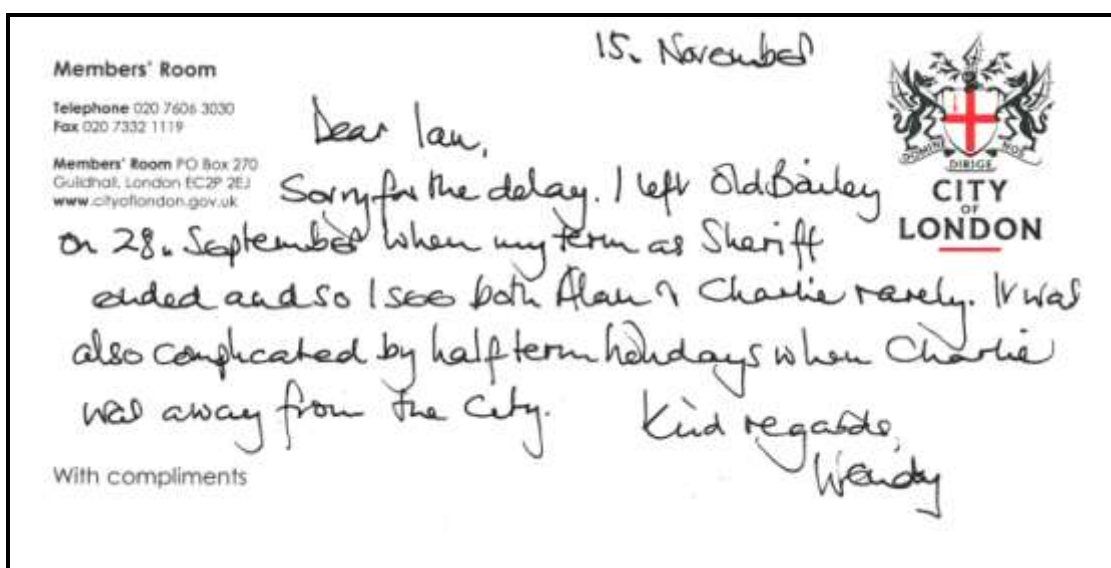 15. November
Members' Room
Telephone 020 7606 3030
Fax 020 7332 1119
Members' Room PO Box 270
Guildhall, London EC2P 2EJ
www.cityoflondon.gov.uk
DOMINE DIRIGE NOS
CITY
OF
LONDON
Dear Ian,
Sorry for the delay. I left Old Bailey
on 28. September when my term as Sheriff
ended and so I see both Alan & Charlie rarely. It was
also complicated by half term holidays when Charlie
was away from the City.
Kind regards,
Wendy
With compliments